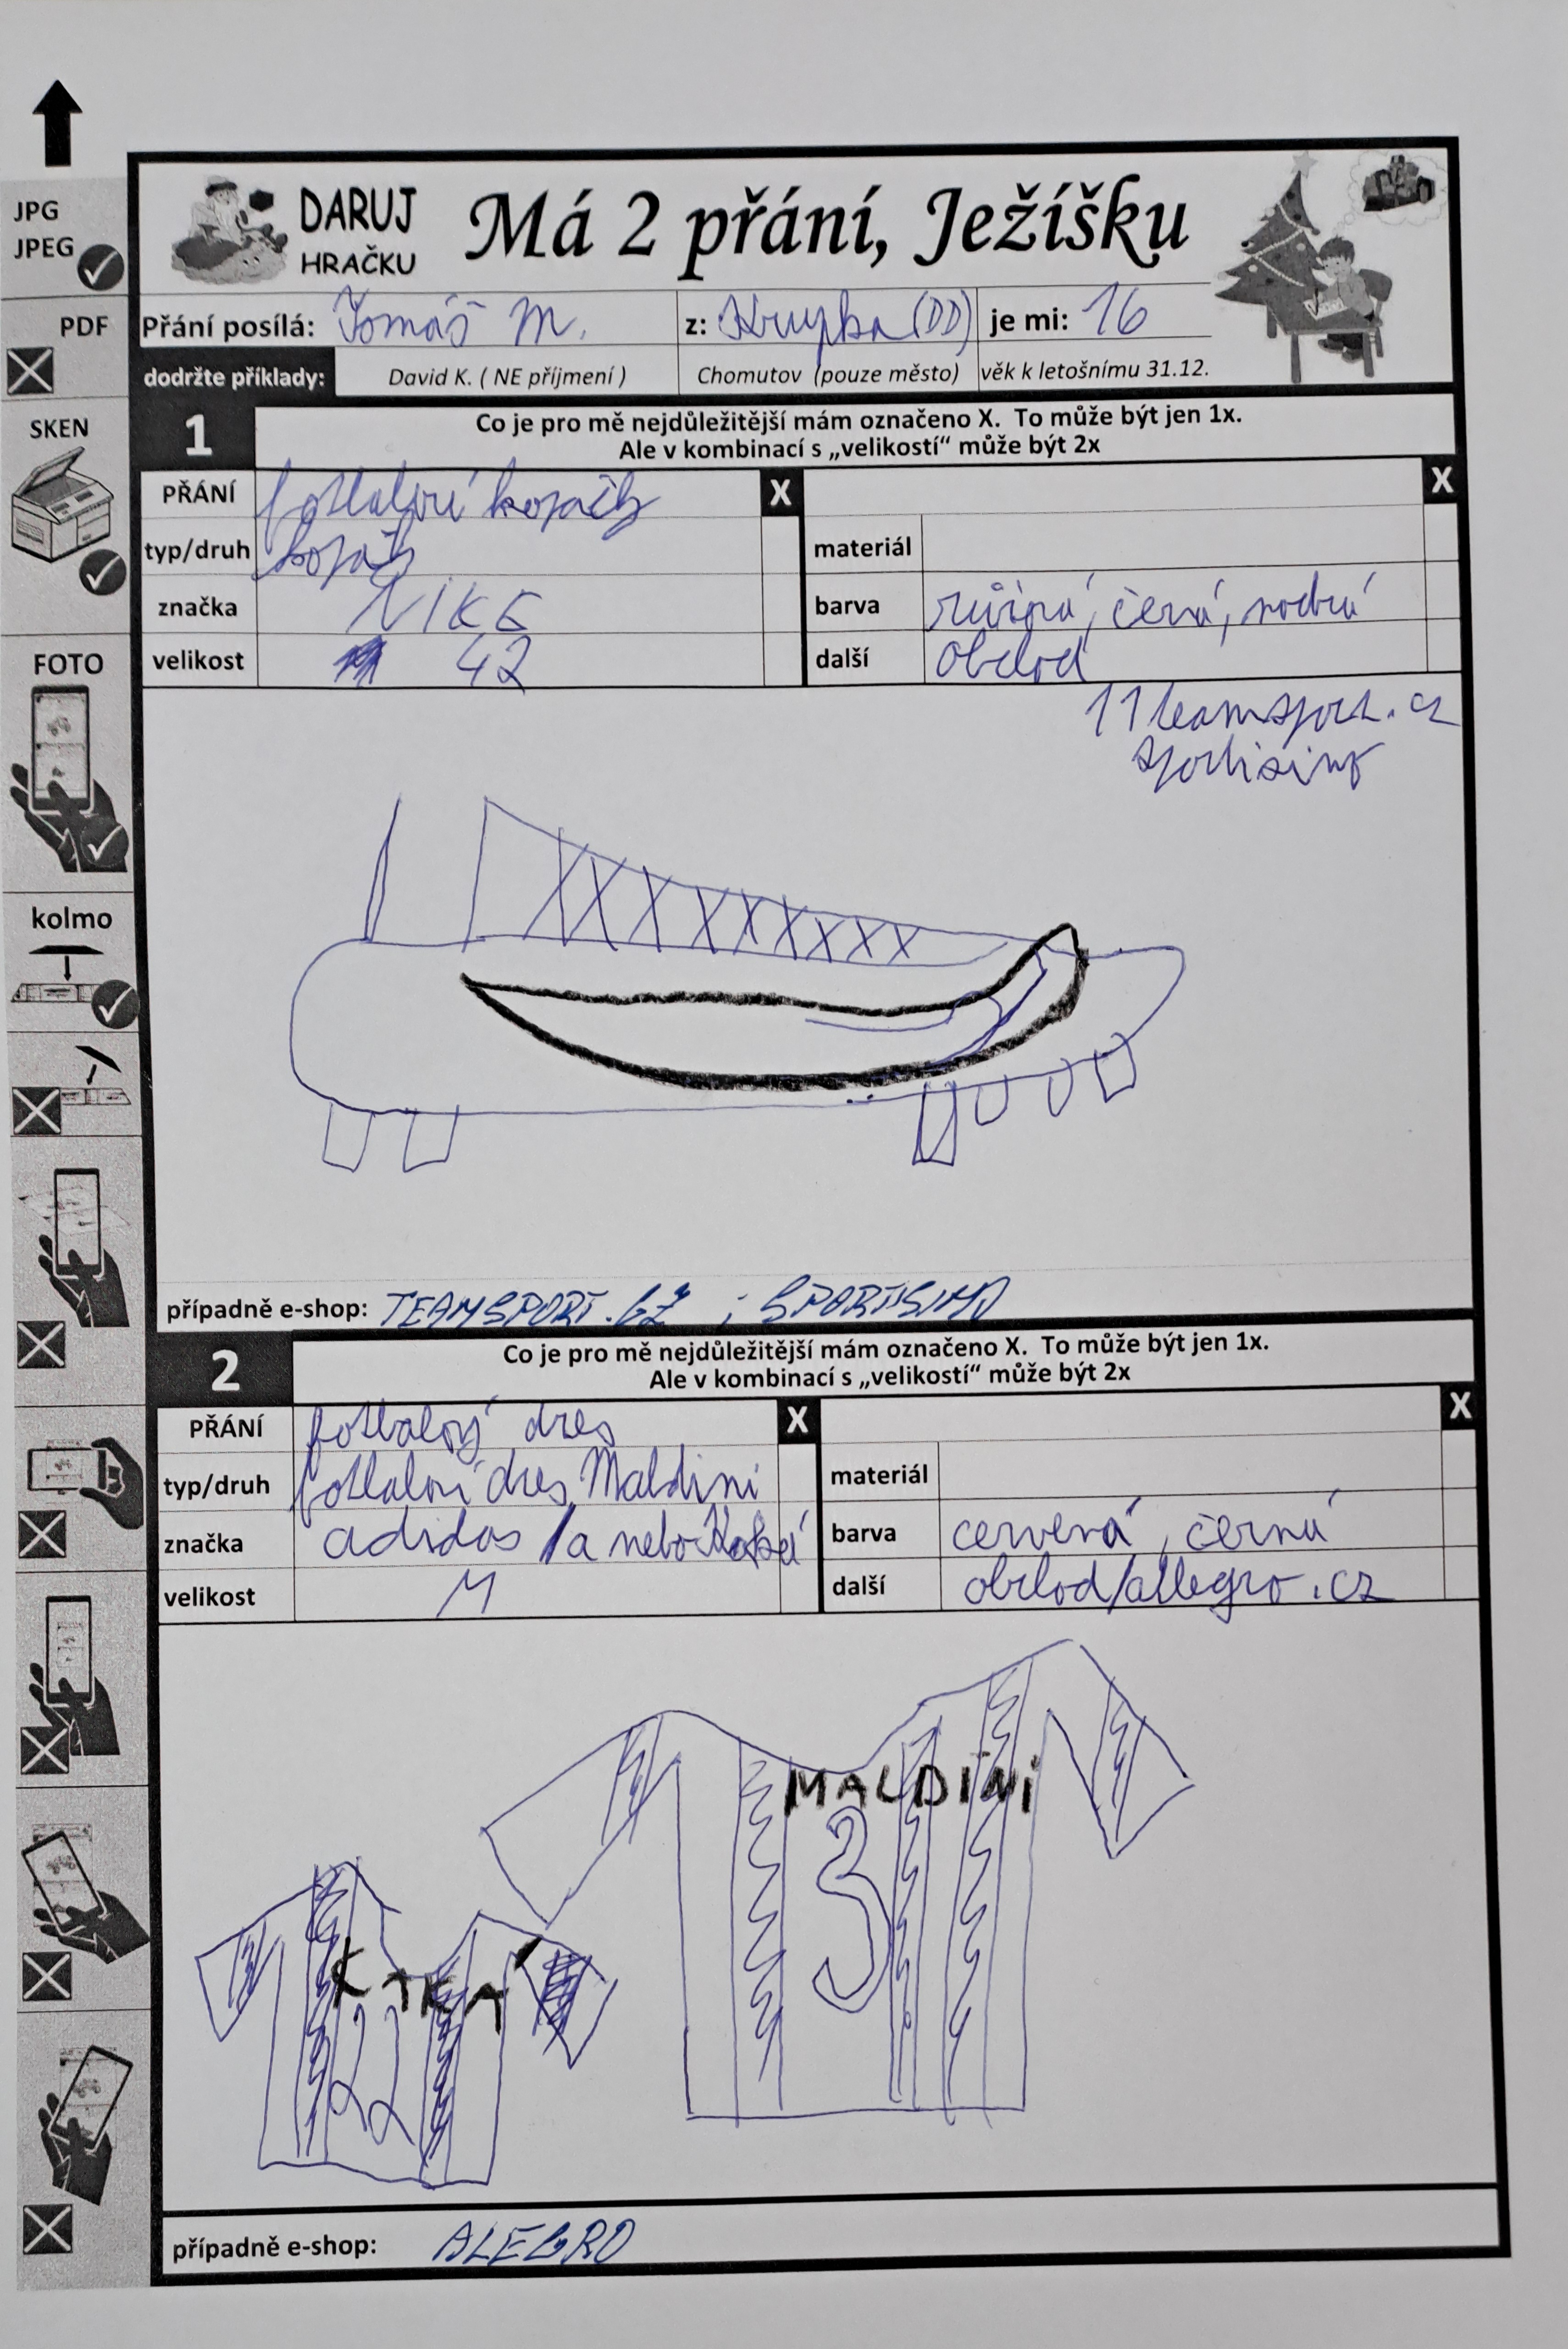 JPG
JPEG
PDF
SKEN
FOTO
kolmo
DARUJ
HRAČKU
Má 2 přání, Ježíšku
Přání posílá: Tomáš M. z: Krupka (DD) je mi: 16
dodržte příklady: David K. ( NE příjmení ) Chomutov (pouze město) věk k letošnímu 31.12.
1 Co je pro mě nejdůležitější mám označeno X. To může být jen 1x.
Ale v kombinací s „velikostí“ může být 2x
PŘÁNÍ fotbaloví kopačky X X
typ/druh kopačky materiál
značka NIKE barva růžová, černá, modrá
velikost 42 další obchod
11teamsport.cz
sportisimo
případně e-shop: TEAMSPORT.CZ ; SPORTISIMO
2 Co je pro mě nejdůležitější mám označeno X. To může být jen 1x.
Ale v kombinací s „velikostí“ může být 2x
PŘÁNÍ fotbalový dres X X
typ/druh fotbaloví dres Maldini materiál
značka adidas /a nebo barva cervená, černá
velikost M další obchod/allegro.cz
MALDINI
3
KAKÁ
22
případně e-shop: ALEGRO